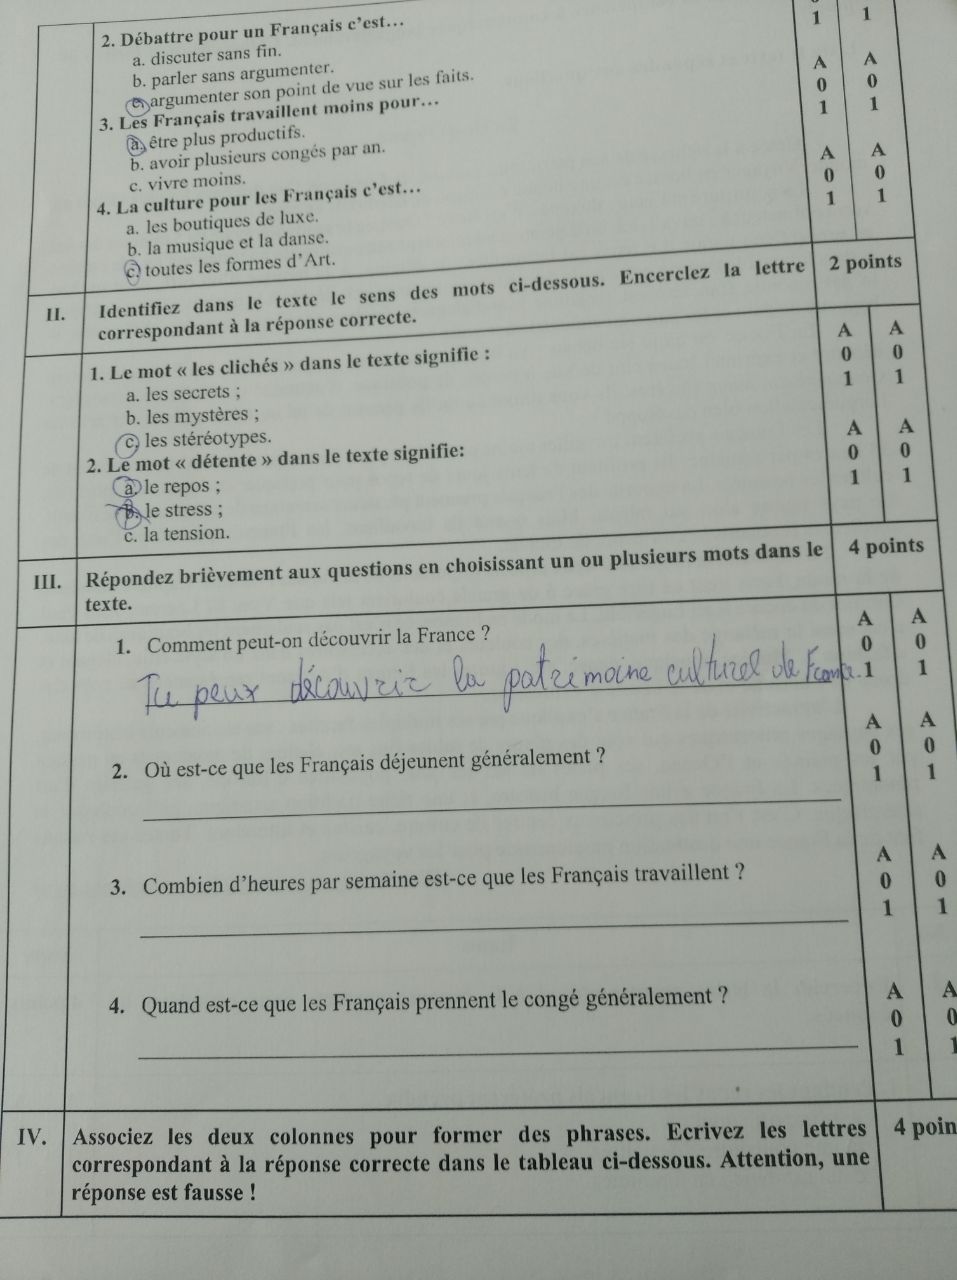 1 1
2. Débattre pour un Français c'est…
a. discuter sans fin.
b. parler sans argumenter.
c. argumenter son point de vue sur les faits.
A A
0 0
1 1
3. Les Français travaillent moins pour…
a. être plus productifs.
b. avoir plusieurs congés par an.
c. vivre moins.
A A
0 0
1 1
4. La culture pour les Français c'est…
a. les boutiques de luxe.
b. la musique et la danse.
c. toutes les formes d'Art.
II. Identifiez dans le texte le sens des mots ci-dessous. Encerclez la lettre 2 points
correspondant à la réponse correcte.
1. Le mot « les clichés » dans le texte signifie :
a. les secrets ;
b. les mystères ;
c. les stéréotypes.
A A
0 0
1 1
2. Le mot « détente » dans le texte signifie:
a. le repos ;
b. le stress ;
c. la tension.
A A
0 0
1 1
III. Répondez brièvement aux questions en choisissant un ou plusieurs mots dans le 4 points
texte.
1. Comment peut-on découvrir la France ?
Tu peux découvrir la patrimoine culturel de France.
A A
0 0
1 1
2. Où est-ce que les Français déjeunent généralement ?
A A
0 0
1 1
3. Combien d'heures par semaine est-ce que les Français travaillent ?
A A
0 0
1 1
4. Quand est-ce que les Français prennent le congé généralement ?
A A
0 0
1 1
IV. Associez les deux colonnes pour former des phrases. Ecrivez les lettres 4 poin
correspondant à la réponse correcte dans le tableau ci-dessous. Attention, une
réponse est fausse !